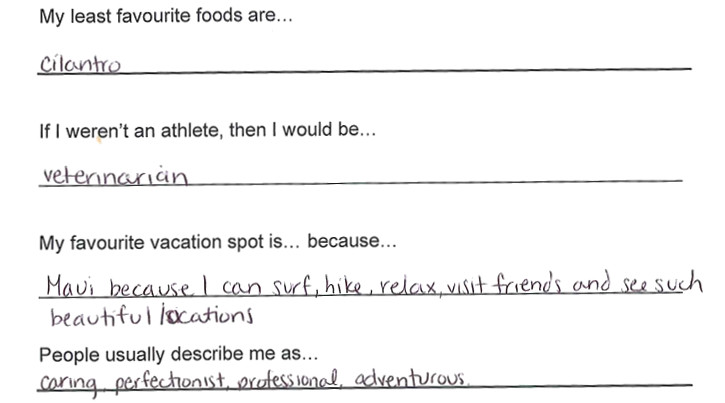 My least favourite foods are...
cilantro
If I weren't an athlete, then I would be...
veterinarian
My favourite vacation spot is... because...
Maui because I can surf, hike, relax, visit friends and see such
beautiful locations
People usually describe me as...
caring, perfectionist, professional, adventurous.